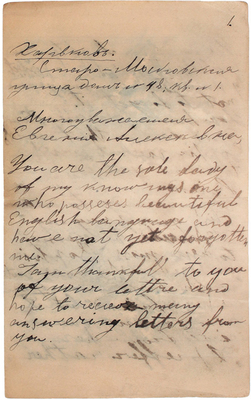 1
Харьковъ.
Старо-Московская
улица домъ № 98, кв № 1.
Многоуважаемая
Евгения Алексеевна,
You are the sole lady
of my knowings
who possess beautiful
English language and
have not yet forgotten
me.
I am thankful to you
of your lettre and
hope to recieve many
answering letters from
you.